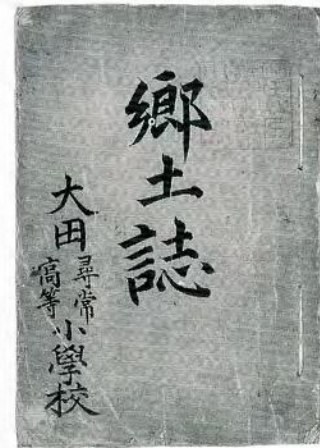 鄉土誌
大田尋常高等小學校